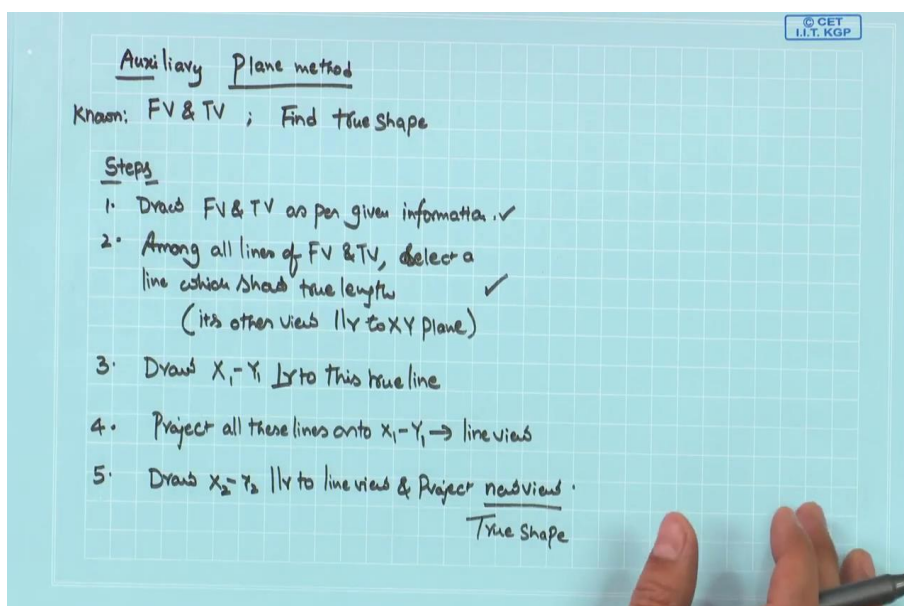 © CET
I.I.T. KGP
Auxiliary Plane method
Known: FV & TV ; Find true shape
Steps
1. Draw FV & TV as per given information. ✓
2. Among all lines of FV & TV, select a
line which shows true length ✓
(its other view llr to XY plane)
3. Draw X₁-Y₁ Lr to this true line
4. Project all these lines onto X₁-Y₁ → line view
5. Draw X₂-Y₂ llr to line view & Project new view.
True shape